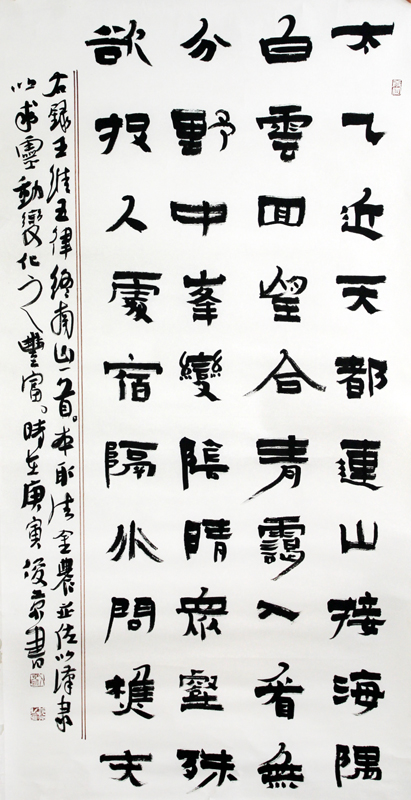 太乙近天都連山接海隅
白雲回望合青靄入看無
分野中峯變陰晴衆壑殊
欲投人處宿隔水問樵夫
右錄王維五律終南山一首。本取法金農並佐以漢隸
以求靈動變化之豐富。時在庚寅書